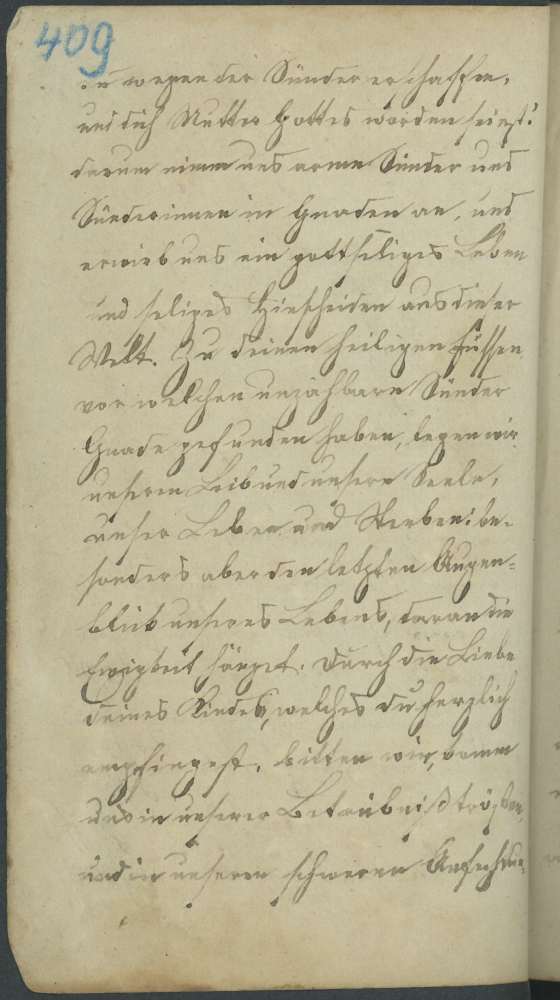 409
du wegen der Sünder erschaffen,
und dich Mutter Gottes worden seiest:
darum nimm uns arme Sünder und
Sünderinnen in Gnaden an, und
erwirb uns ein gottseliges Leben
und seliges Hinscheiden aus dieser
Welt. Zu deinen heiligen Füssen
vor welchen unzahlbare Sünder
Gnade gefunden haben, legen wir
unseren Leib und unsere Seele,
unser Leben und Sterben: be-
sonders aber den letzten Augen-
blick unseres Lebens, daran die
Ewigkeit hänget. Durch die Liebe
deines Kindes, welches du herzlich
empfingest, bitten wir, komm
uns in unserer Betrübniß trösten,
und in unseren schweren Anfechtun-